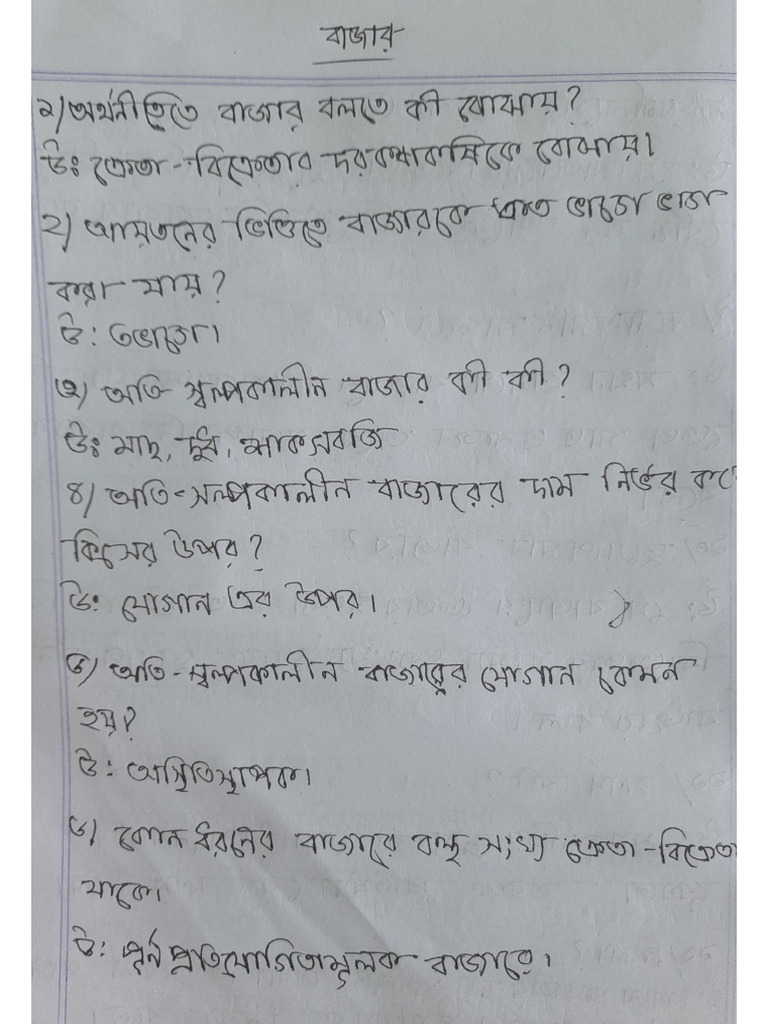 বাজার
১) অর্থনীতিতে বাজার বলতে কী বোঝায়?
উঃ ক্রেতা-বিক্রেতার দরকষাকষিকে বোঝায়।
২) আয়তনের ভিত্তিতে বাজারকে কত ভাগে ভাগ
করা যায়?
উ: ৩ভাগে।
৩) অতি স্বল্পকালীন বাজার কী কী?
উঃ মাছ, দুধ, শাকসবজি
৪) অতি-সল্পকালীন বাজারের দাম নির্ভর করে
কিসের উপর?
উ: যোগান এর উপর।
৫) অতি-স্বল্পকালীন বাজারের যোগান কেমন
হয়?
উ: অস্থিতিস্থাপক।
৬) কোন ধরনের বাজারে বহু সংখ্য ক্রেতা-বিক্রেতা
থাকে।
উ: পূর্ন প্রতিযোগিতামূলক বাজারে।